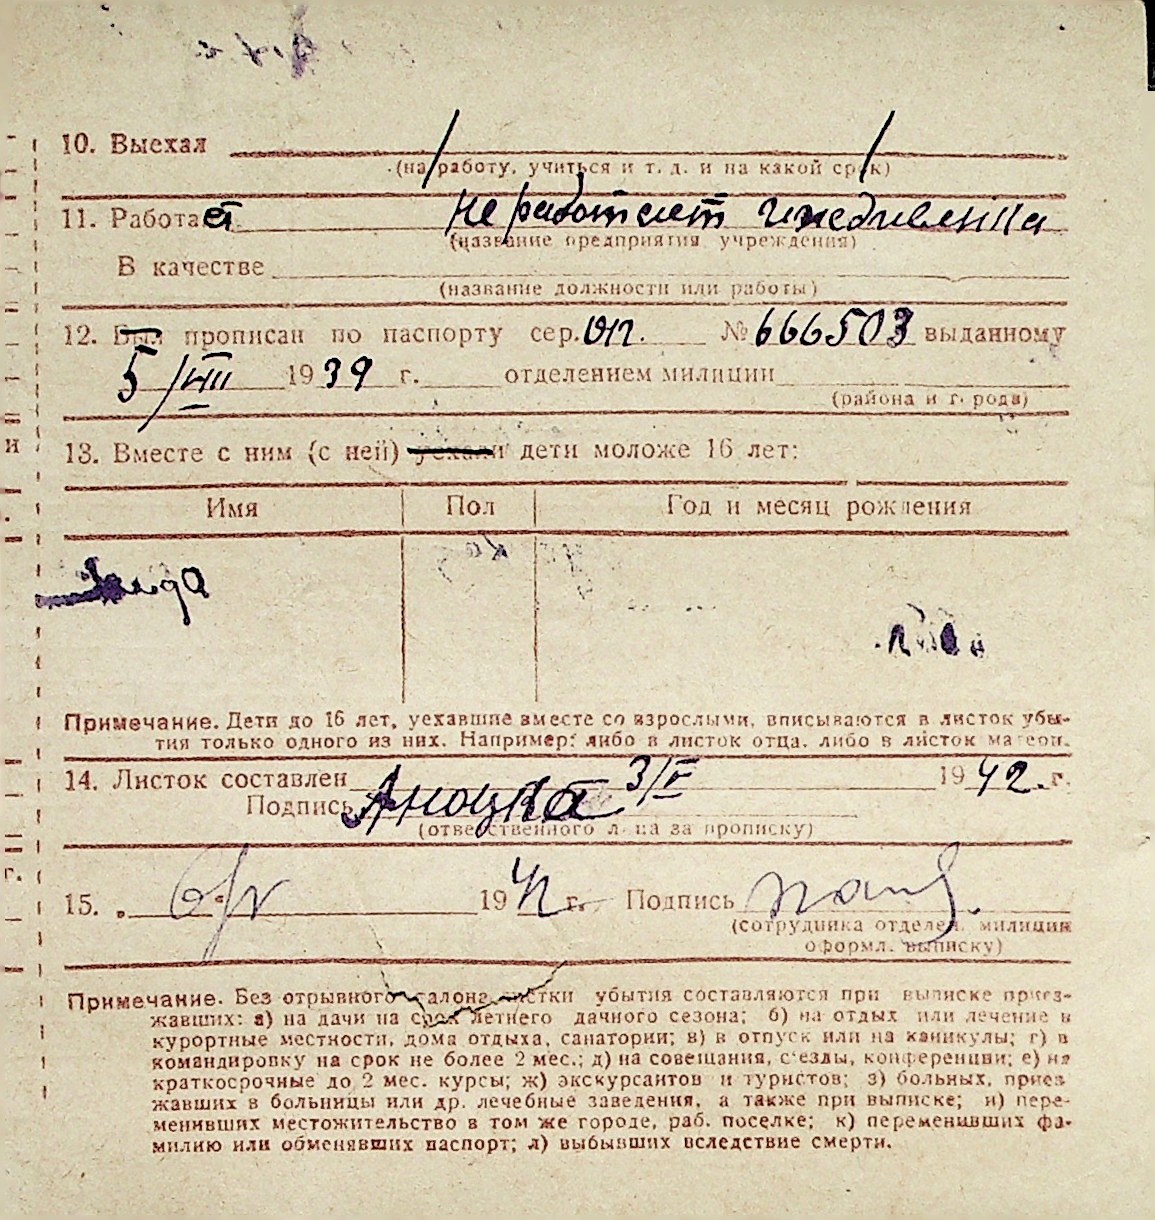 10. Выехал
(на работу, учиться и т. д. и на какой срок)
11. Работает не работает иждивенка
(название предприятия учреждения)
В качестве
(название должности или работы)
12. Был прописан по паспорту сер. № 666503 выданному
5/VIII 1939 г. отделением милиции
(района и города)
13. Вместе с ним (с ней) уехали дети моложе 16 лет:
Имя Пол Год и месяц рождения
Примечание. Дети до 16 лет, уехавшие вместе со взрослыми, вписываются в листок убы-
тия только одного из них. Например: либо в листок отца, либо в листок матери.
14. Листок составлен 3/V 1942 г.
Подпись
(ответственного лица за прописку)
15. 1942 г. Подпись
(сотрудника отделен. милиции
оформл. выписку)
Примечание. Без отрывного талона листки убытия составляются при выписке приез-
жавших: а) на дачи на срок летнего дачного сезона; б) на отдых или лечение в
курортные местности, дома отдыха, санатории; в) в отпуск или на каникулы; г) в
командировку на срок не более 2 мес.; д) на совещания, съезды, конференции; е) на
краткосрочные до 2 мес. курсы; ж) экскурсантов и туристов; з) больных, приез-
жавших в больницы или др. лечебные заведения, а также при выписке; и) пере-
менивших местожительство в том же городе, раб. поселке; к) переменивших фа-
милию или обменявших паспорт; л) выбывших вследствие смерти.